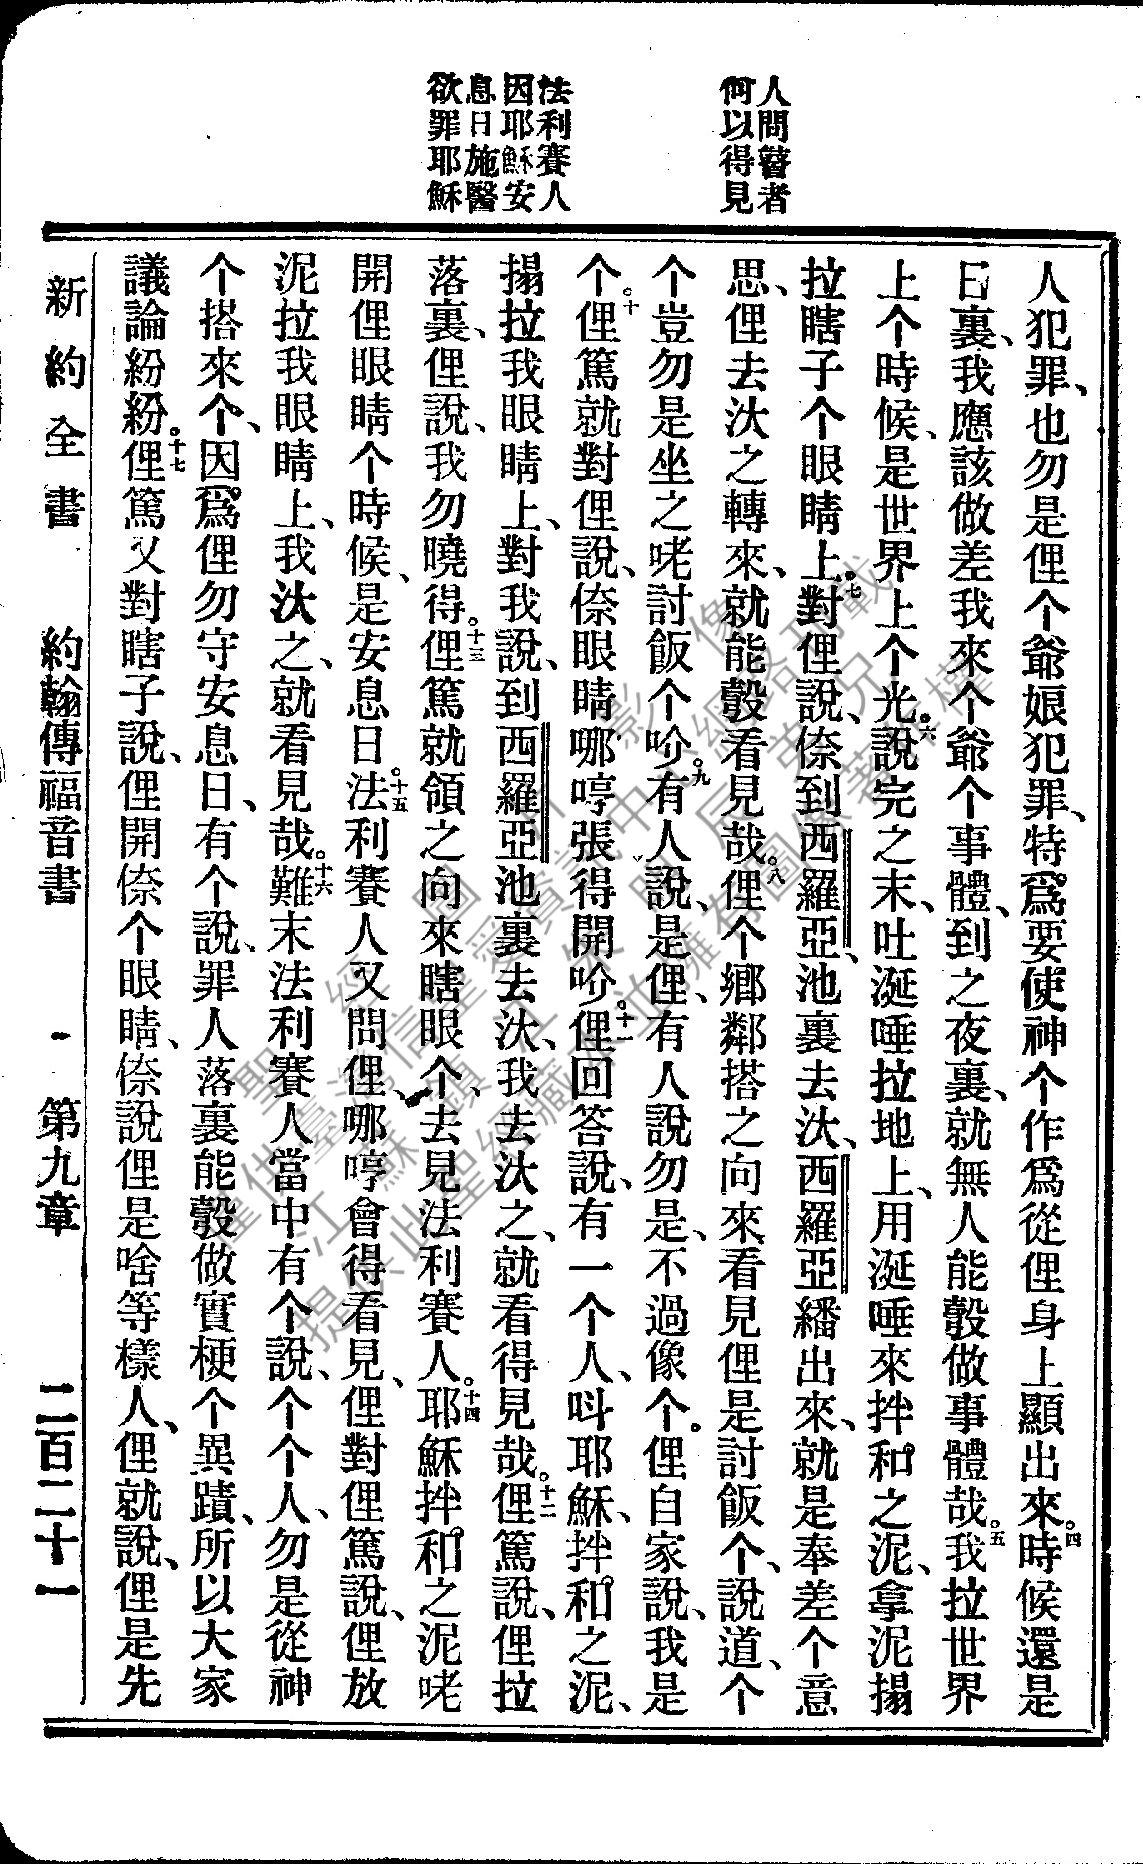 人問瞽者
何以得見
法利賽人
因耶穌安
息日施醫
欲罪耶穌
人犯罪、也勿是俚个爺娘犯罪、特爲要使神个作爲從俚身上顯出來。四時候還是
日裏、我應該做差我來个爺个事體、到之夜裏、就無人能彀做事體哉。五我拉世界
上个時候、是世界上个光。六說完之末、吐涎唾拉地上、用涎唾來拌和之泥、拿泥搨
拉瞎子个眼睛上。七對俚說、倷到西羅亞、池裏去汏、西羅亞繙出來、就是奉差个意
思、俚去汏之轉來、就能彀看見哉。八俚个鄉鄰搭之向來看見俚是討飯个、說道、个
个豈勿是坐之咾討飯个吤。九有人說、是俚、有人說勿是、不過像个。俚自家說、我是
个。十俚篤就對俚說、倷眼睛哪哼張得開吤。十一俚回答說、有一个人、呌耶穌、拌和之泥、
搨拉我眼睛上、對我說、到西羅亞池裏去汏、我去汏之、就看得見哉。十二俚篤說、俚拉
落裏、俚說、我勿曉得。十三俚篤就領之向來瞎眼个、去見法利賽人。十四耶穌拌和之泥咾
開俚眼睛个時候、是安息日。十五法利賽人又問俚、哪哼會得看見、俚對俚篤說、俚放
泥拉我眼睛上、我汏之、就看見哉。十六難末法利賽人當中有个說、个个人、勿是從神
个搭來个、因爲俚勿守安息日、有个說、罪人落裏能彀做實梗个異蹟、所以大家
議論紛紛。十七俚篤又對瞎子說、俚開倷个眼睛、倷說俚是啥等樣人、俚就說、俚是先
新約全書 約翰傳福音書 第九章 二百二十一